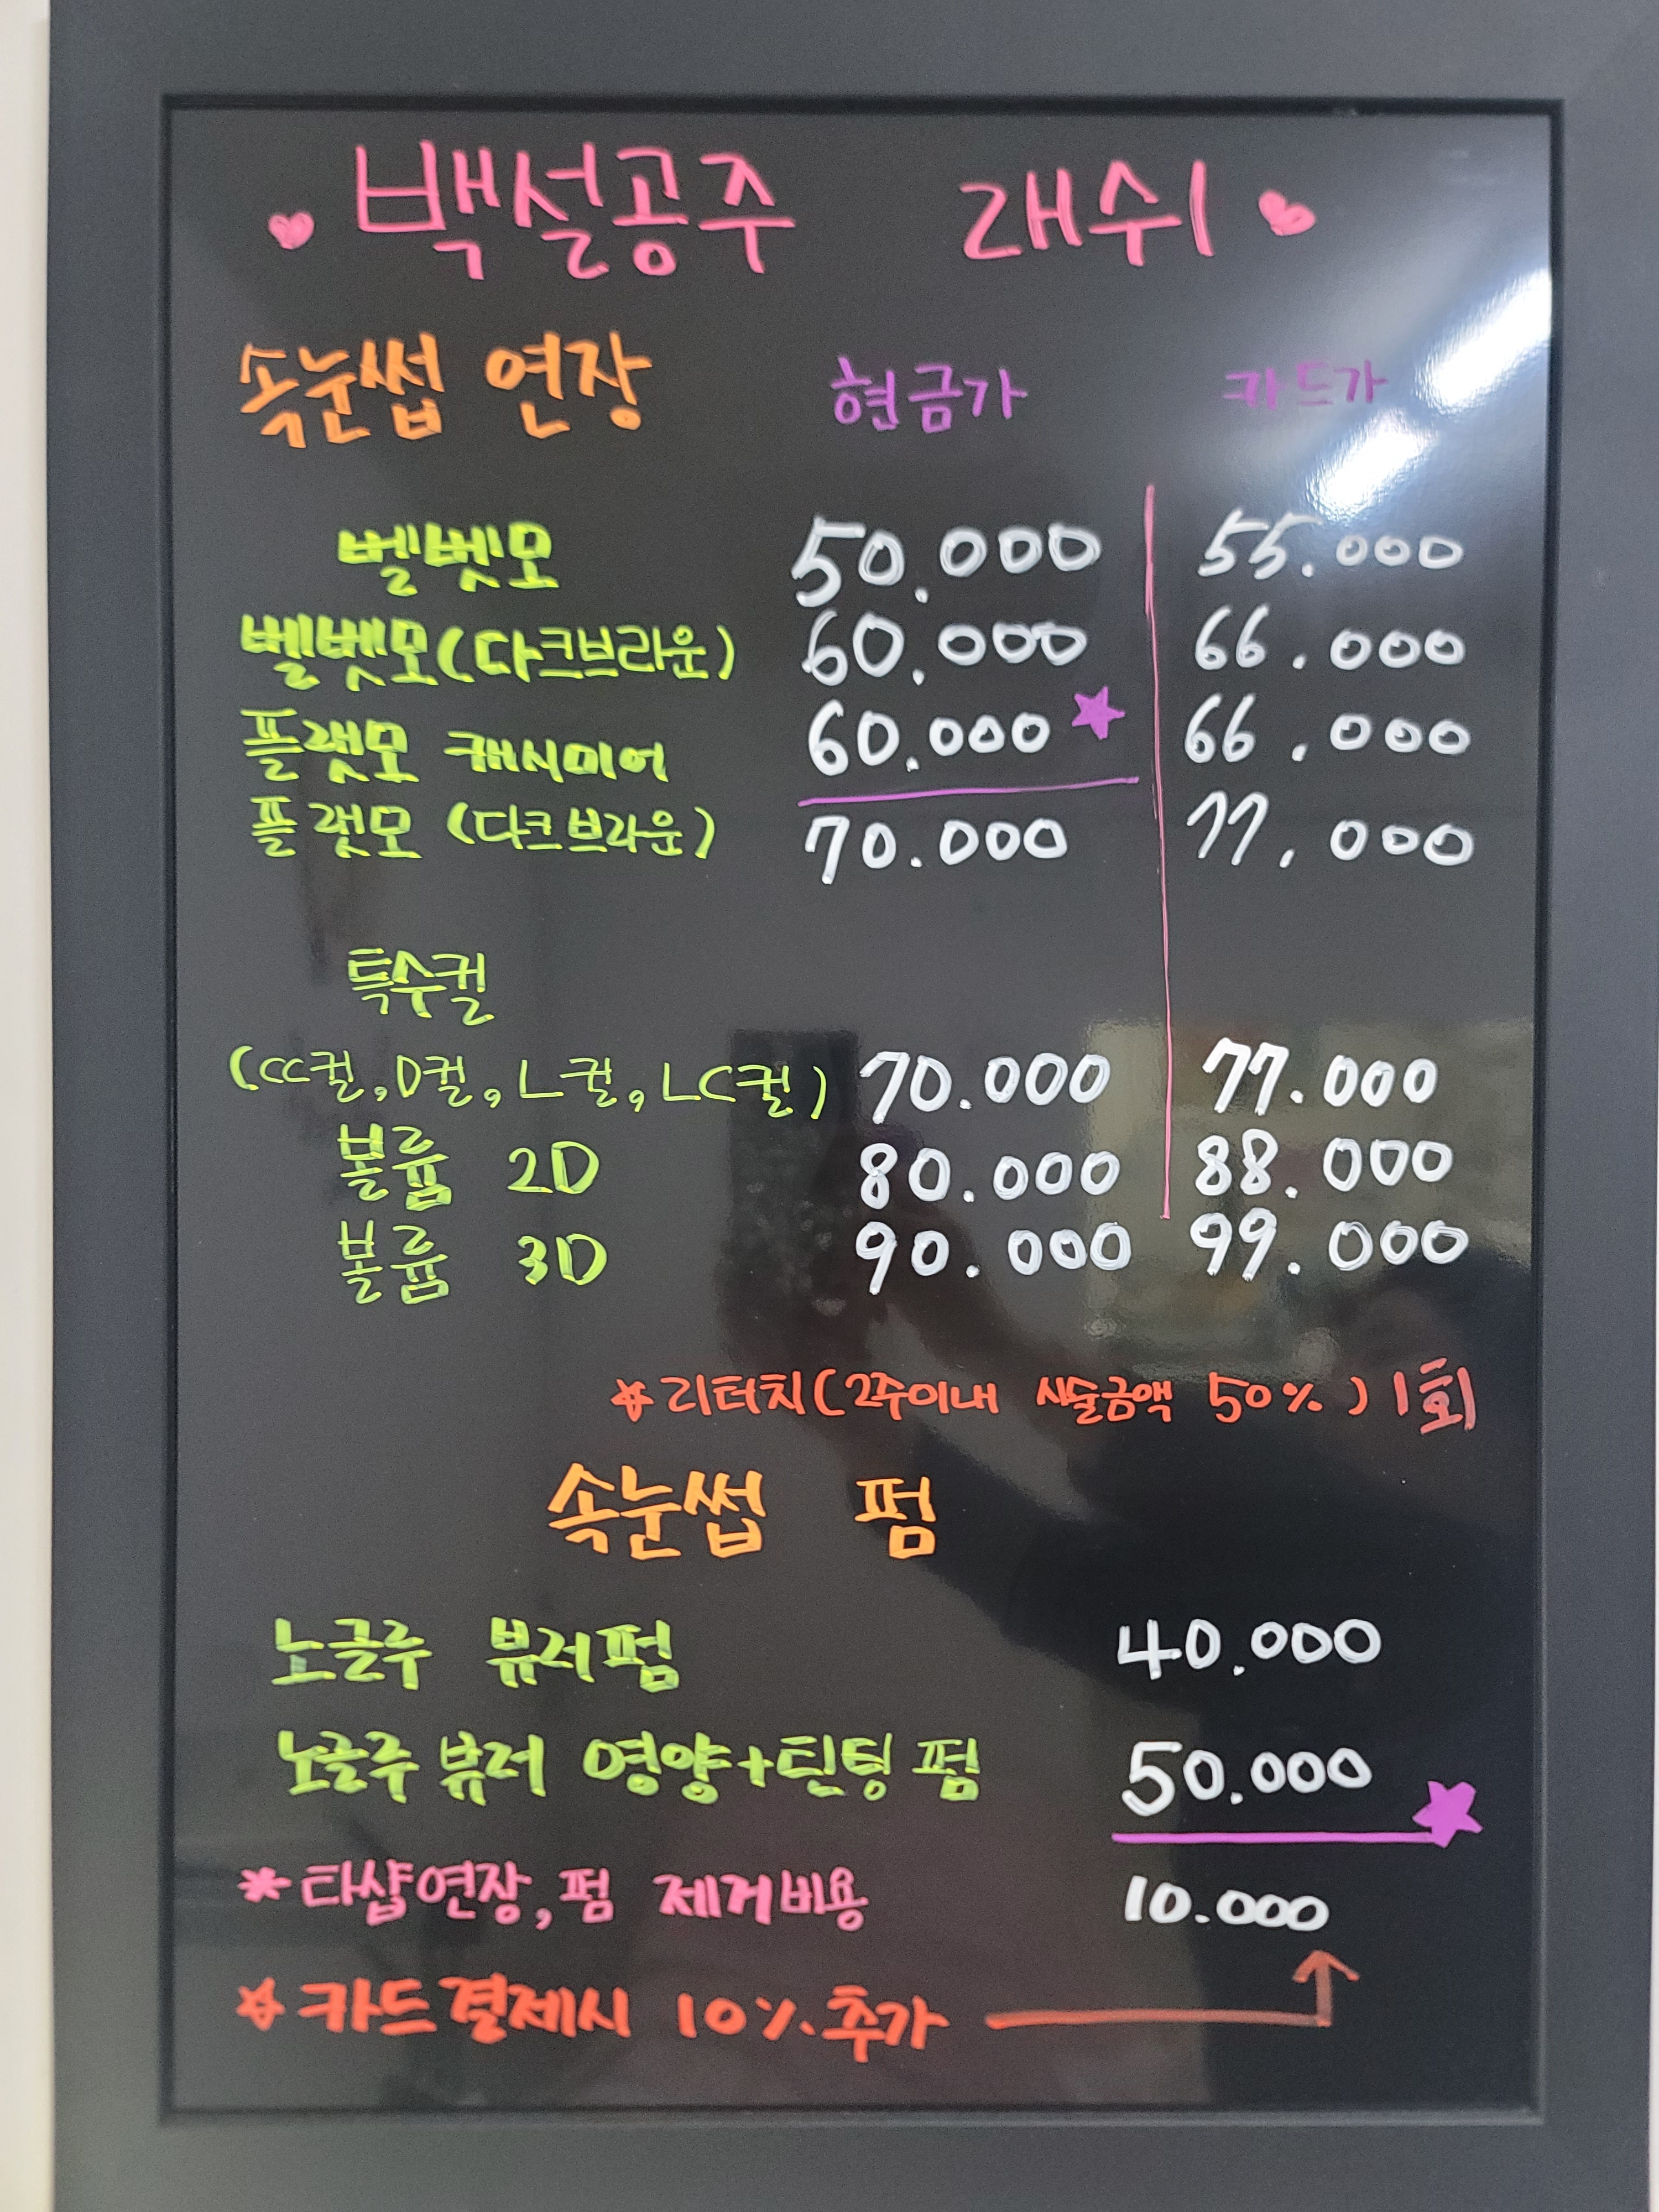 백설공주 래쉬
속눈썹 연장 현금가 카드가
벨벳모 50.000 55.000
벨벳모(다크브라운) 60.000 66.000
플랫모 캐시미어 60.000 66.000
플랫모 (다크브라운) 70.000 77.000
특수컬
(CC컬, D컬, L컬, LC컬) 70.000 77.000
볼륨 2D 80.000 88.000
볼륨 3D 90.000 99.000
*리터치(2주이내 시술금액 50%) 1회
속눈썹 펌
노글루 뷰러펌 40.000
노글루 뷰러 영양+틴팅 펌 50.000
*타샵연장, 펌 제거비용 10.000
*카드결제시 10% 추가